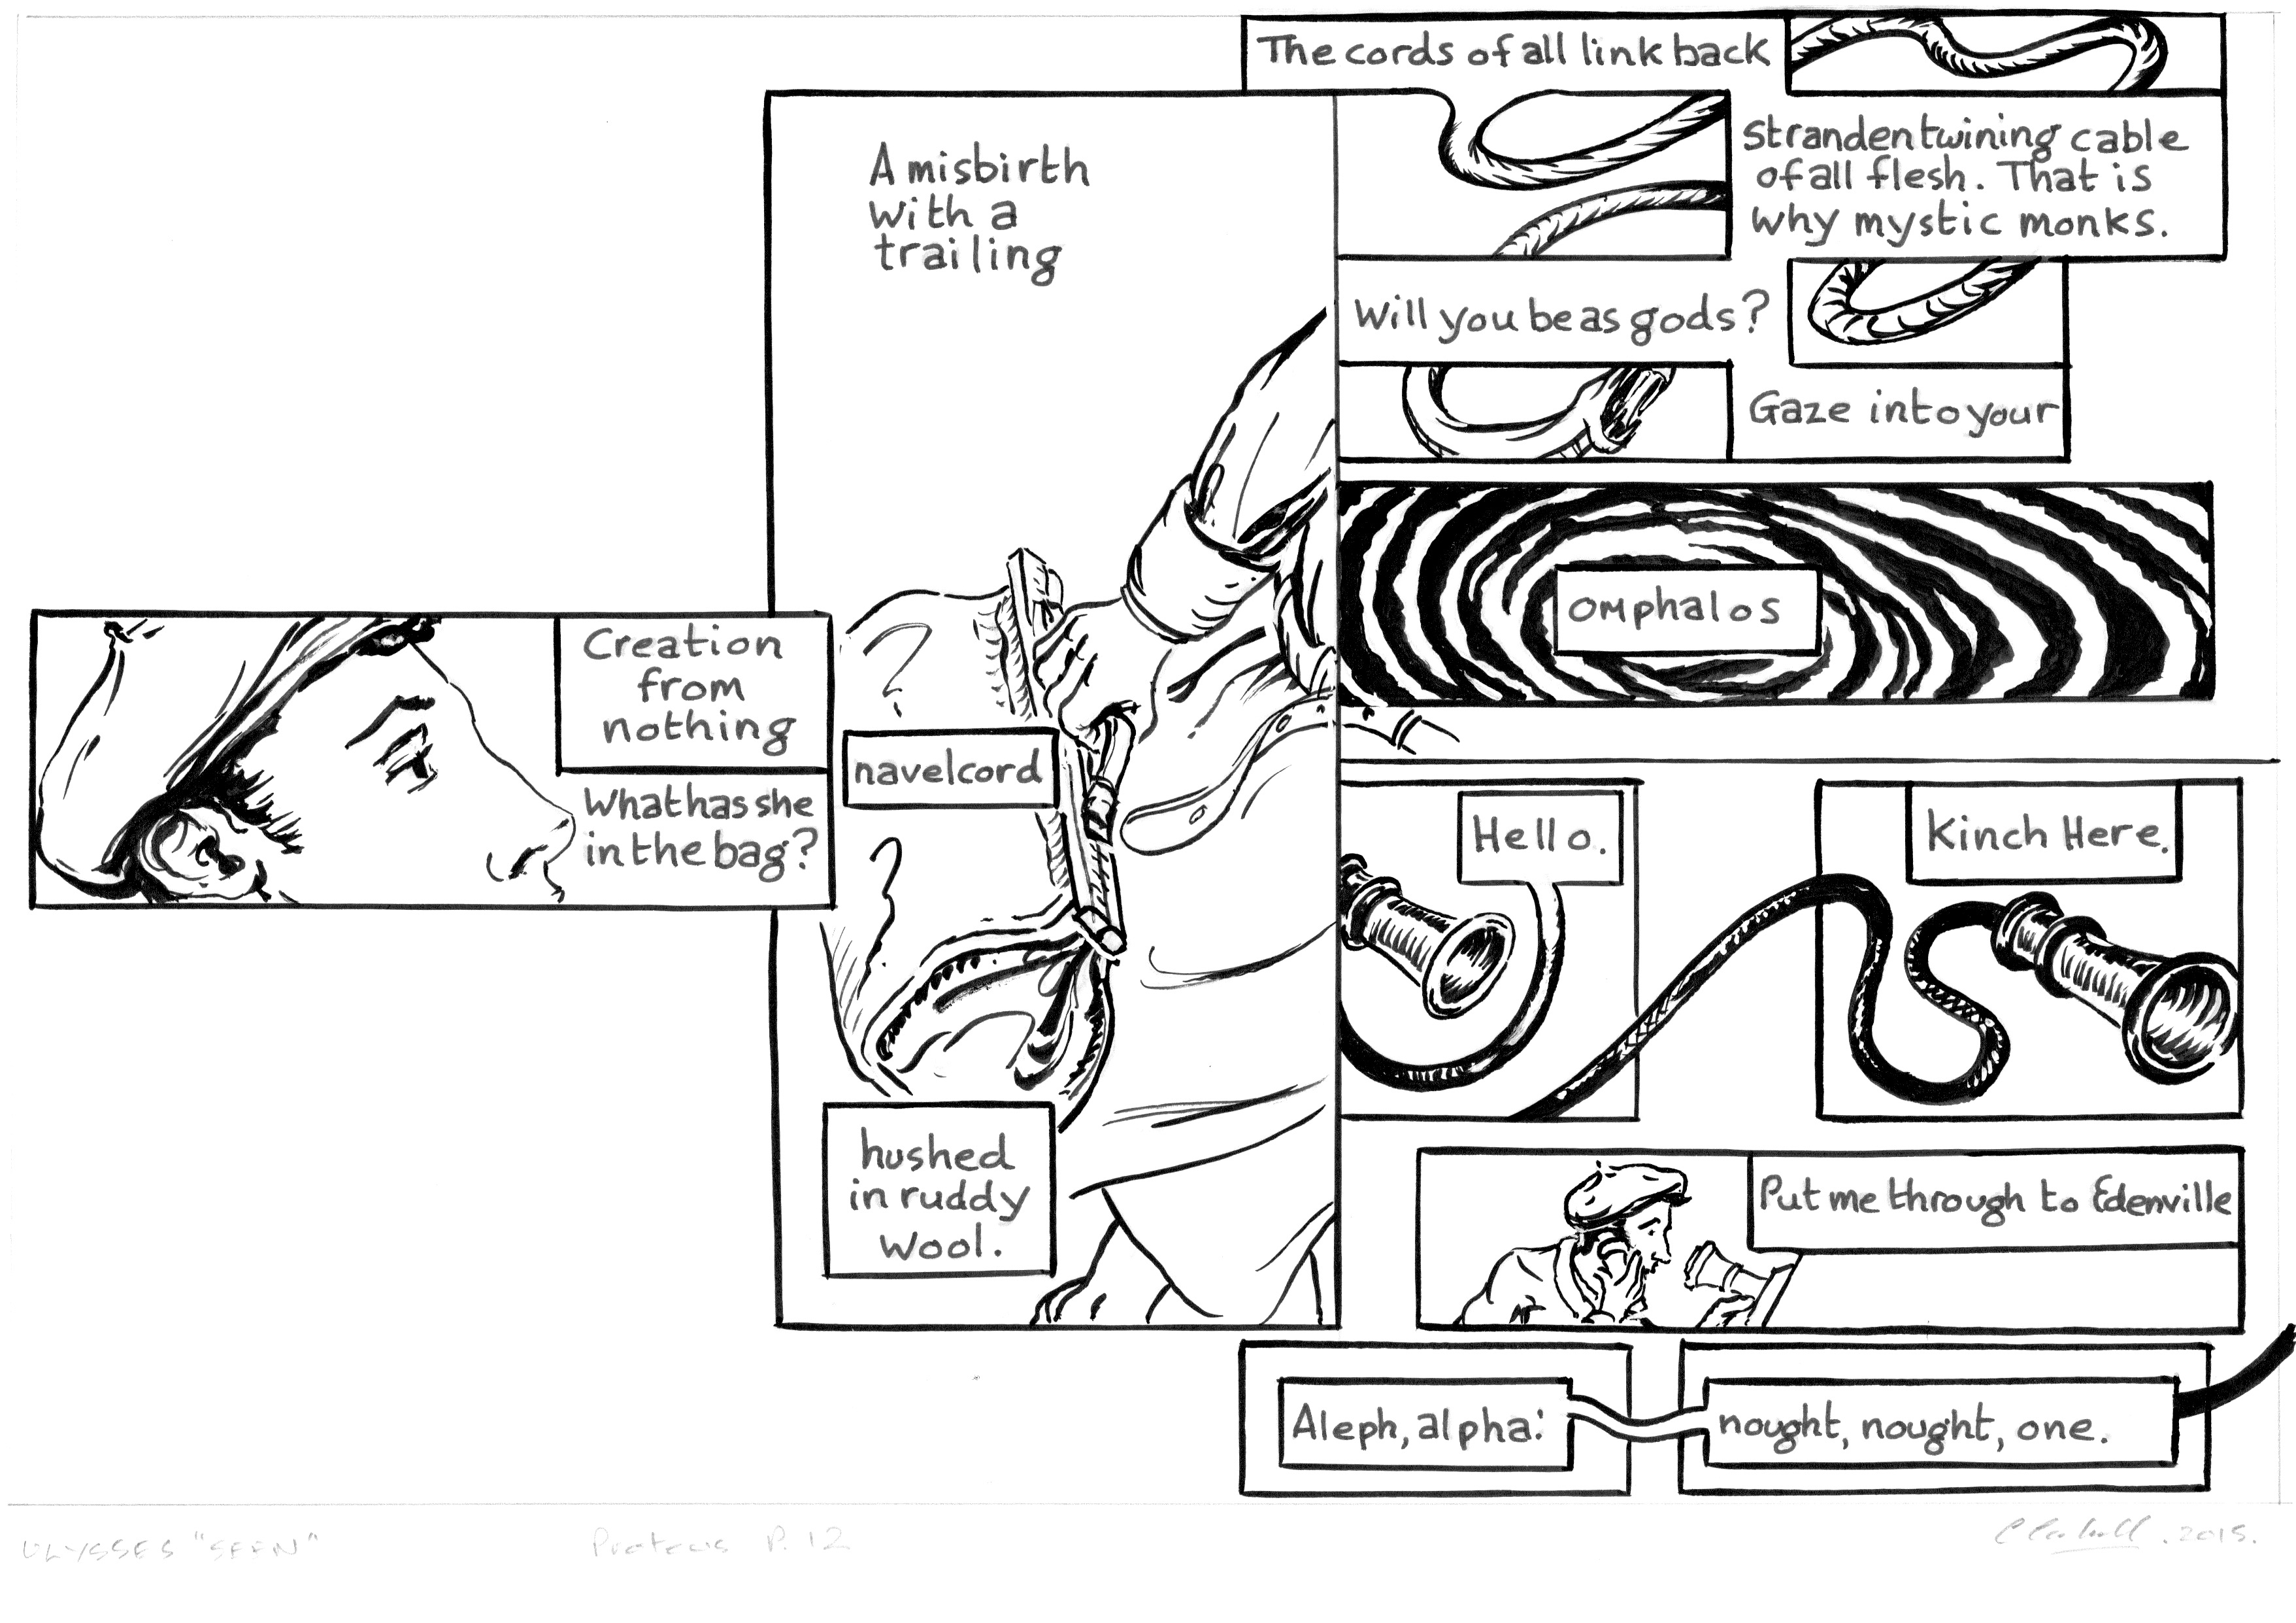 Creation
from
nothing
What has she
in the bag?
A misbirth
with a
trailing
navelcord
hushed
in ruddy
wool.
The cords of all link back
Strandentwining cable
of all flesh. That is
why mystic monks.
Will you be as gods?
Gaze into your
omphalos
Hello.
Kinch Here.
Put me through to Edenville
Aleph, alpha:
nought, nought, one.
ULYSSES "SEEN"
Proteus P. 12
2015.